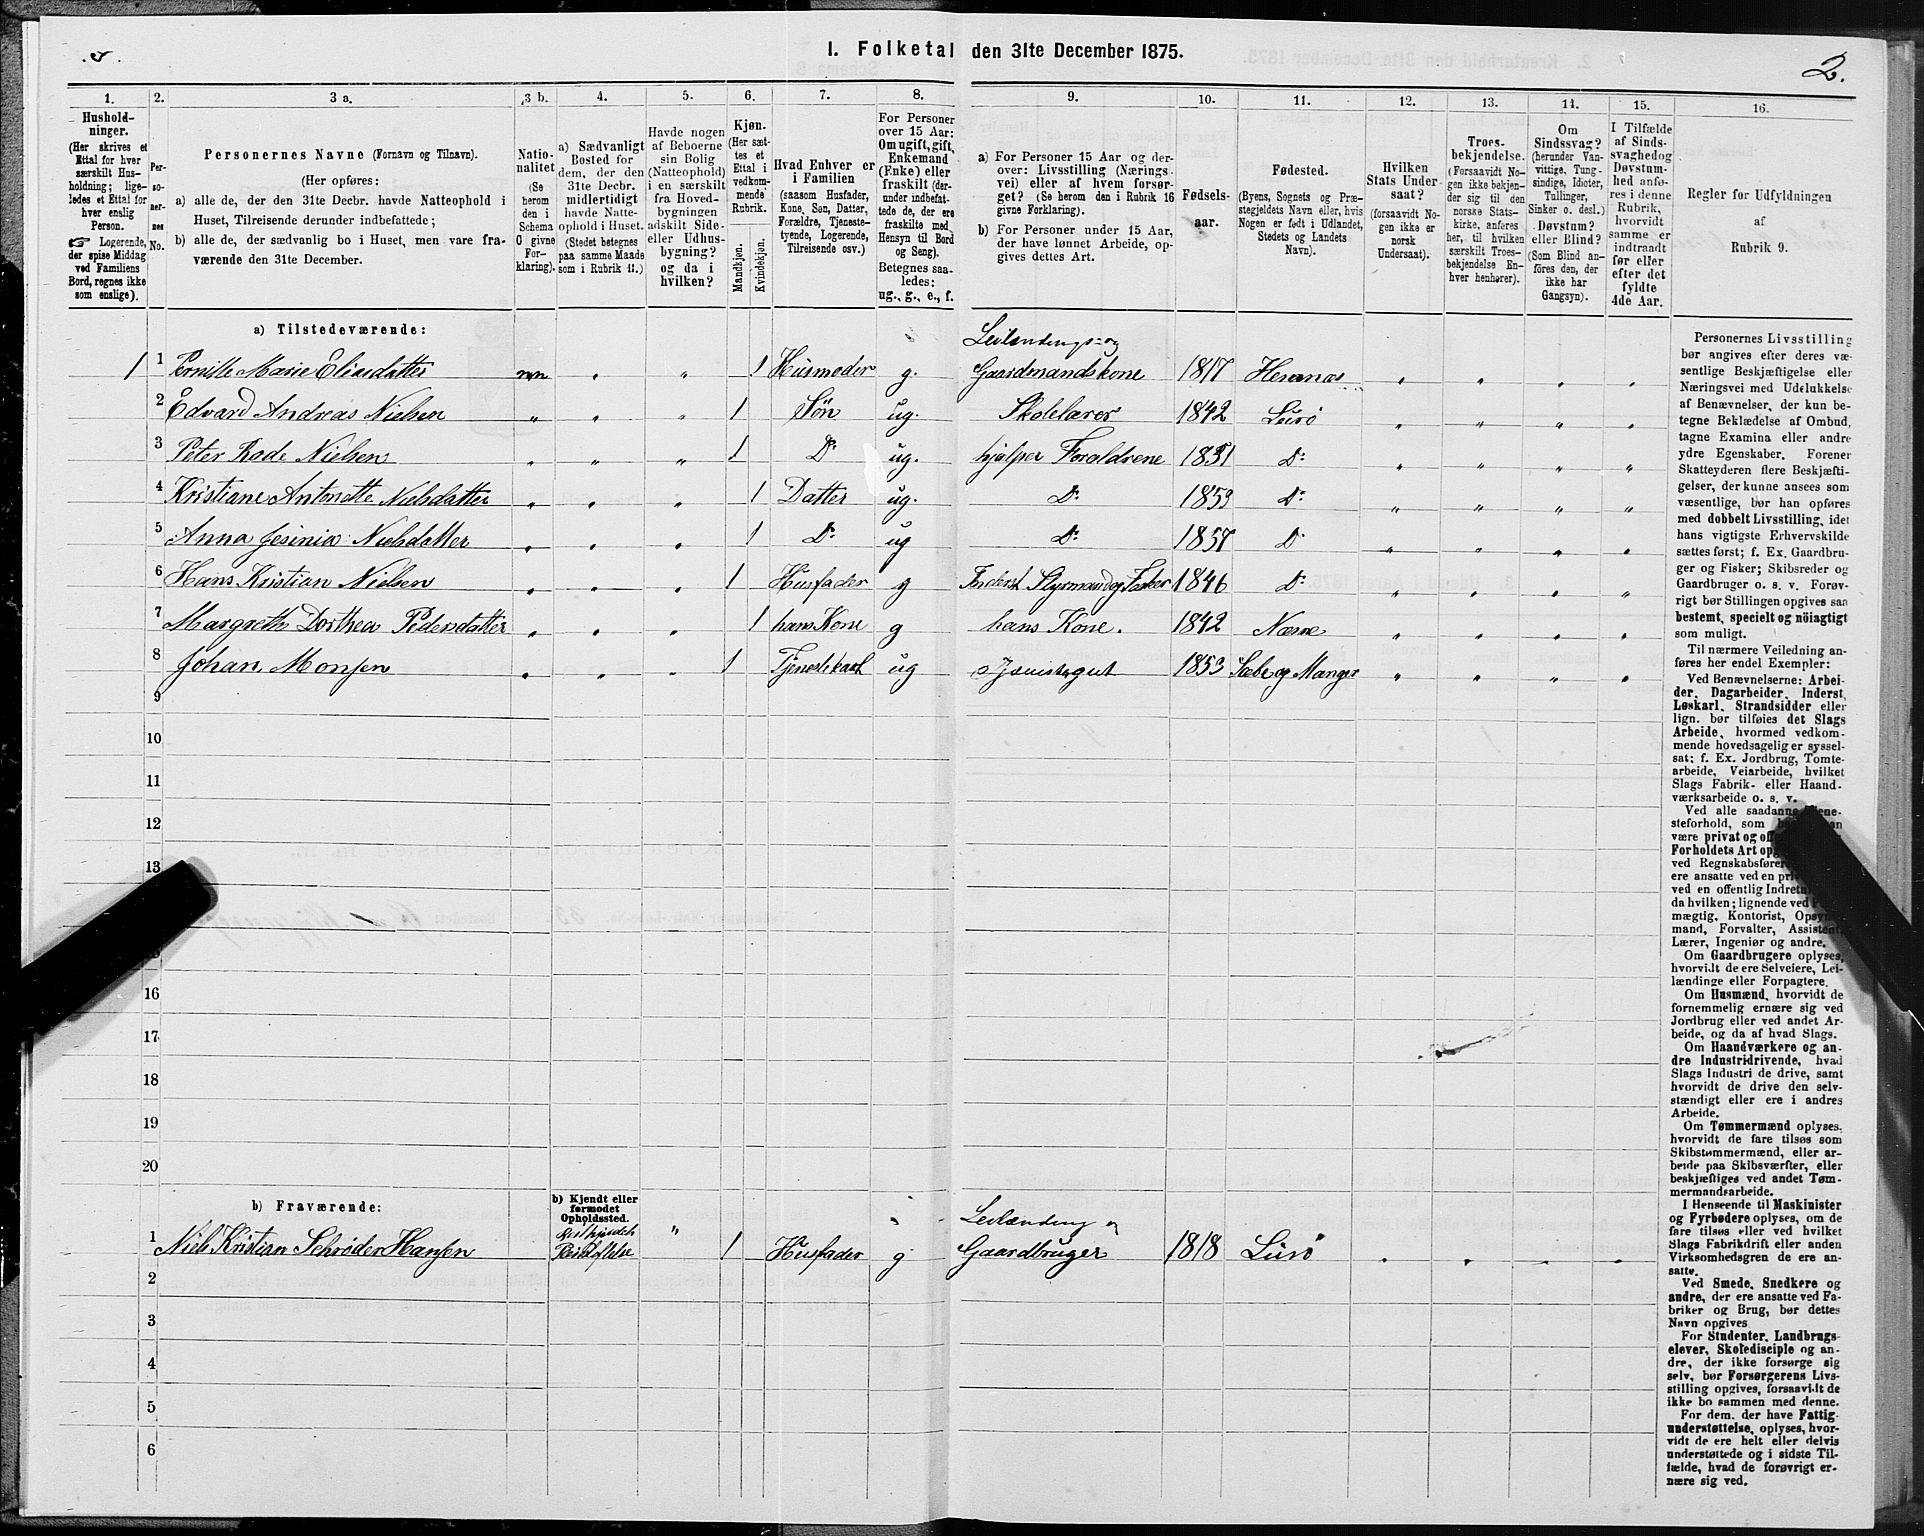 1. Folketal den 31te December 1875.
2.
1. 2. 3 a. 3 b. 4. 5. 6. 7. 8. 9. 10. 11. 12. 13. 14. 15. 16.
Hushold-
ninger.
(Her skrives et
Ettal for hver
særskilt Hus-
holdning; lige-
ledes et Ettal for
hver enslig
Person.
☞ Logerende,
der spise Middag
ved Familiens
Bord, regnes ikke
som enslige).
Per-
so-
ner-
nes
No.
Personernes Navne (Fornavn og Tilnavn).
(Her opføres:
a) alle de, der den 31te Decbr. havde Natteophold i
Huset, Tilreisende derunder indbefattede;
b) alle de, der sædvanlig bo i Huset, men vare fra-
værende den 31te December.
Natio-
nalitet
(Se
herom
den i
Schema
O givne
For-
klaring).
a) Sædvanligt
Bosted for
dem, der den
31te Decbr.
midlertidigt
havde Natte-
ophold i Huset.
(Stedet betegnes
paa samme Maade
som i Rubrik 11.)
Havde nogen
af Beboerne
sin Bolig
(Natteophold)
i en særskilt
fra Hoved-
bygningen
adskilt Side-
eller Udhus-
bygning?
og da i
hvilken?
Kjøn.
(Her sæt-
tes et
Ettal i
vedkom-
mende
Rubrik.
Mandkjøn.
Kvindekjøn.
Hvad Enhver er
i Familien
(saasom Husfader,
Kone, Søn, Datter,
Forældre, Tjeneste-
tyende, Logerende,
Tilreisende osv.)
For Personer
over 15 Aar:
Om ugift, gift,
Enkemand
(Enke) eller
fraskilt (der-
under indbefat-
tede de, der ere
fraskilte med
Hensyn til Bord
og Seng).
Betegnes saa-
ledes:
ug., g., e., f.
a) For Personer 15 Aar og der-
over: Livsstilling (Nærings-
vei) eller af hvem forsør-
get? (Se herom den i Rubrik 16
givne Forklaring).
b) For Personer under 15 Aar,
der have lønnet Arbeide, op-
gives dettes Art.
Fødsels-
aar.
Fødested.
(Byens, Sognets og Præ-
stegjeldets Navn eller, hvis
Nogen er født i Udlandet,
Stedets og Landets
Navn).
Hvilken
Stats Under-
saat?
(forsaavidt No-
gen ikke er
norsk
Undersaat).
Troes-
bekjendelse.
(Forsaavidt No-
gen ikke bekjen-
der sig til den
norske Stats-
kirke, anføres
her, til hvilken
særskilt Troes-
bekjendelse En-
hver henhører).
Om
Sindssvag?
(herunder Van-
vittige, Tung-
sindige, Idioter,
Tullinger,
Sinker o. desl.)
Døvstum?
eller Blind?
(Som Blind an-
føres den, der
ikke har
Gangsyn).
I Tilfælde
af Sinds-
svaghed og
Døvstum-
hed anfø-
res i denne
Rubrik,
hvorvidt
samme er
indtraadt
før eller
efter det
fyldte
4de Aar.
Regler for Udfyldningen
af
Rubrik 9.
a) Tilstedeværende:
Leilændings- og
1 1 Pernille Marie Eliasdatter nn „ „ 1 Husmoder g. Gaardmandskone 1817 Hernnæs „ „ „ „
2 Edvard Andreas Nielsen „ „ „ 1 Søn ug. Skolelærer 1842 Lurø „ „ „ „
3 Peter Rode Nielsen „ „ „ 1 Do ug. hjælper Forældrene 1851 Do „ „ „ „
4 Kristiane Antonette Nielsdatter „ „ „ 1 Datter ug. Do 1853 Do „ „ „ „
5 Anna Jesinia Nielsdatter „ „ „ 1 Do ug Do 1857 Do „ „ „ „
6 Hans Kristian Nielsen „ „ „ 1 Husfader g Inderst Styrmand og Fisker 1846 Do „ „ „ „
7 Margreth Dorthea Pedersdatter „ „ „ 1 hans Kone g hans Kone. 1842 Næsne „ „ „ „
8 Johan Monsen „ „ „ 1 Tjenestekarl ug Tjenstegut 1853 Sæbe og Manger „ „ „ „
9
10
11
12
13
16
17
18
19
20
b) Fraværende:
b) Kjendt eller
formodet
Opholdssted.
Leilænding og
1 Niels Kristian Schrøder Hansen „ 1 Husfader g Gaardbruger 1818 Lurø „ „ „ „
2
3
4
5
6
Personernes Livsstilling
bør angives efter deres væ-
sentlige Beskjæftigelse eller
Næringsvei med Udelukkelse
af Benævnelser, der kun be-
tegne Beklædelse af Ombud,
tagne Examina eller andre
ydre Egenskaber. Forener
Skatteyderen flere Beskjæfti-
gelser, der kunne ansees som
væsentlige, bør han opføres
med dobbelt Livsstilling, idet
hans vigtigste Erhvervskilde
sættes først; f. Ex. Gaardbru-
ger og Fisker; Skibsreder og
Gaardbruger o. s. v. Forøv-
rigt bør Stillingen opgives saa
bestemt, specielt og nöiagtigt
som muligt.
Til nærmere Veiledning an-
føres her endel Exempler:
Ved Benævnelserne: Arbei-
der, Dagarbeider, Inderst,
Løskarl, Strandsidder eller
lign. bør tilføies det Slags
Arbeide, hvormed vedkom-
mende hovedsagelig er syssel-
sat; f. Ex. Jordbrug, Tomte-
arbeide, Veiarbeide, hvilket
Slags Fabrik- eller Haand-
værksarbeide o. s. v.
Ved alle saadanne
steforhold, som
være privat og
Forholdets Art
ved Regnskabsføre
ere ansatte ved en
ved en offentlig
da hvilken; lignende ved
mægtig, Kontorist,
mand, Forvalter,
Lærer, Ingeniør og andre.
Om Gaardbrugere oplyses,
hvorvidt de ere Selveiere, Lei-
lændinge eller Forpagtere.
Om Husmænd, hvorvidt de
fornemmelig ernære sig ved
Jordbrug eller ved andet Ar-
beide, og da af hvad Slags.
Om Haandværkere og an-
dre Industridrivende, hvad
Slags Industri de drive, samt
hvorvidt de drive den selv-
stændigt eller ere i andres
Arbeide.
Om Tømmermænd oplyses,
hvorvidt de fare tilsøs som
Skibstømmermænd, eller ar-
beide paa Skibsværfter, eller
beskjæftiges ved andet Tøm-
mermandsarbeide.
I Henseende til Maskinister
og Fyrbødere oplyses, om de
fare tilsøs eller ved hvilket
Slags Fabrikdrift eller anden
Virksomhedsgren de ere an-
satte.
Ved Smede, Snedkere og
andre, der ere ansatte ved Fa-
briker og Brug, bør dettes
Navn opgives
For Studenter, Landbrugs-
elever, Skoledisciple og an-
dre, der ikke forsørge sig
selv, bør Forsørgerens Livs-
stilling opgives, forsaavidt de
ikke bo sammen med denne.
For dem, der have Fattig-
understøttelse, oplyses, hvor-
vidt de ere helt eller delvis
understøttede og i sidste Til-
fælde, hvad de forøvrigt er-
nære sig ved.